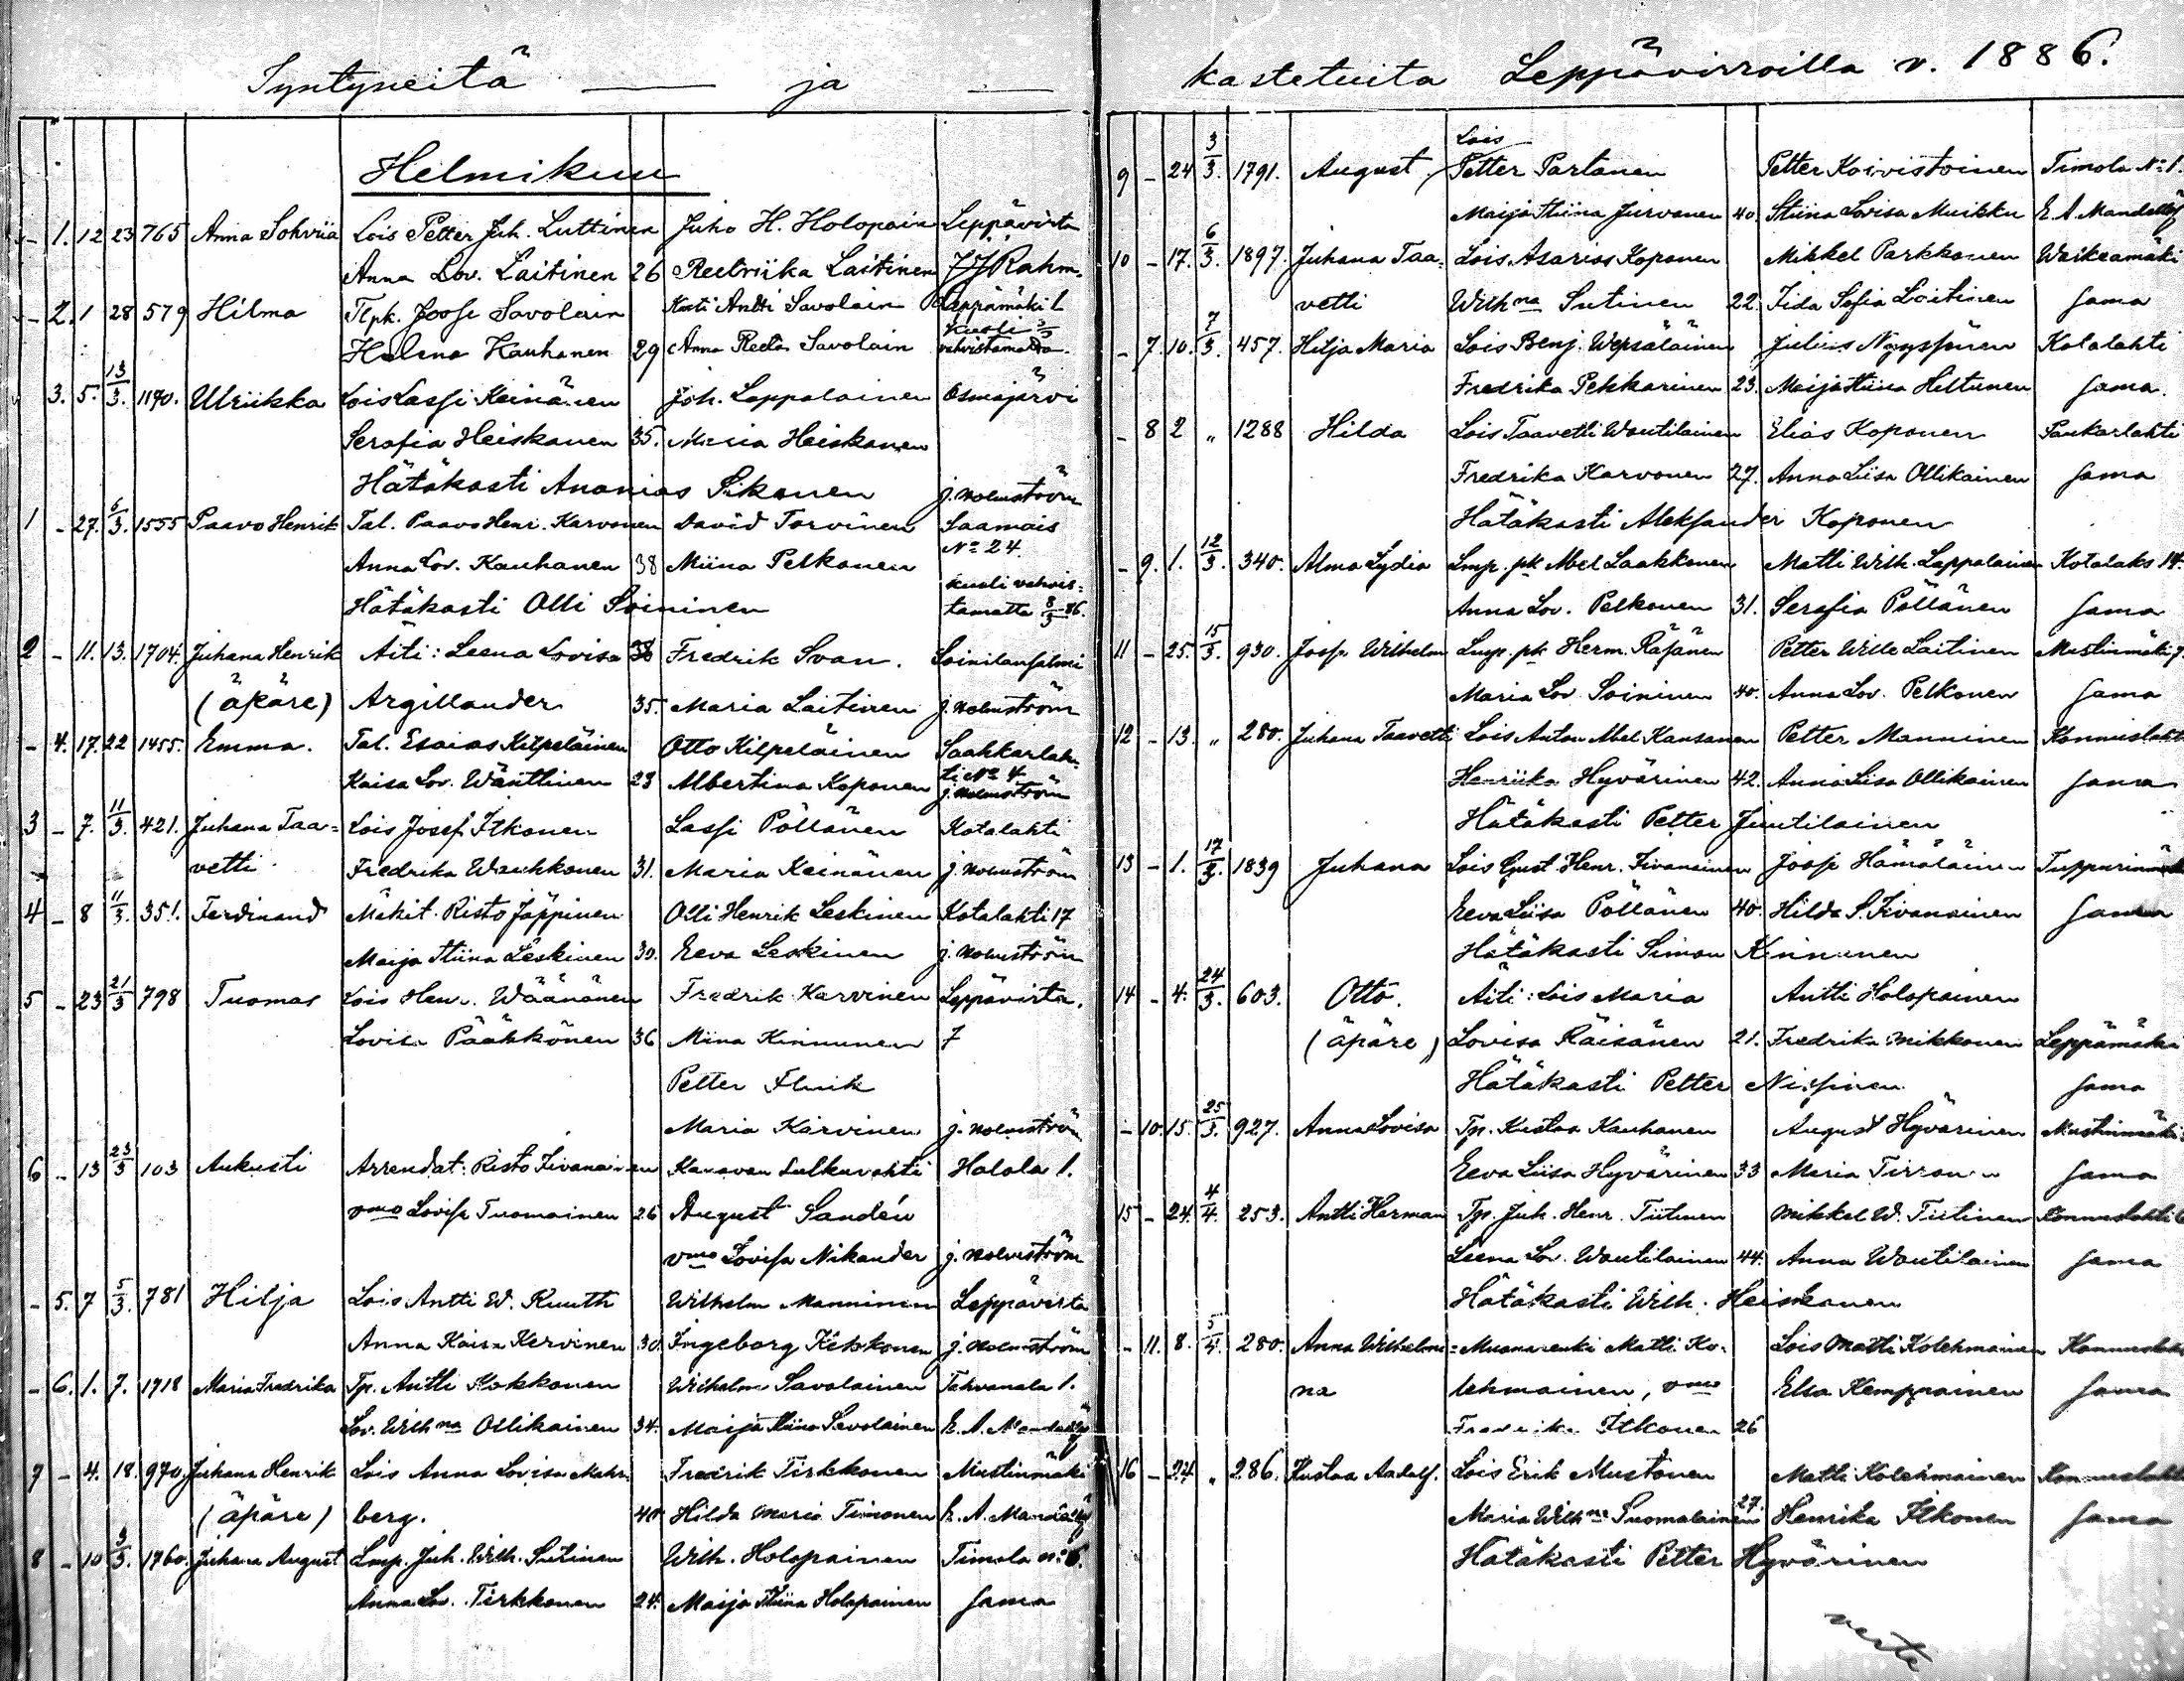 Syntyneitä — ja —
Helmikuu
- 1. 12 23 765 Anna Sohviia Lois Petter Juh. Luttinen Juho H. Holopain Leppävirta
Anna Lov. Laitinen 26 Reetriika Laitinen J J Rahm.
- 2. 1 28 579 Hilma Tlpk. Joose Savolain Kosti Antti Savolain Leppämäki 1
Helena Kauhanen 29 Anna Reeta Savolain Kuoli vahvistamatta.
3. 5. 13/3. 1190. Ulriikka Lois Lassi Keinänen Joh. Lappalainen Osmajärvi
Serafia Heiskanen 35. Maria Heiskanen
Hätäkasti Ananias Sikanen j. Holmström
1 - 27. 6/3. 1555 Paavo Henrik Tal. Paavo Henr. Karvonen David Torvinen Saamais
No 24.
Anna Lov. Kauhanen 38 Miina Pelkonen
Hätäkasti Olli Soininen kuoli vahvistamatta 8/3 86.
2 - 11. 13. 1704. Juhana Henrik Äiti: Leena Lovisa 38 Fredrik Svan. Soinilansalmi
(äpäre) Argillander 35. Maria Laitinen j. Holmström
- 4. 17. 22 1455. Emma. Tal. Esaias Kilpeläinen Otto Kilpeläinen Saahkarlah-
Kaisa Lov. Wänttinen 23 Albertina Koponen ti No 4 j. Holmström
3 - 7. 11/3. 421. Juhana Taa= Lois Josef Itkonen Lassi Pöllänen Kotalahti
vetti Fredrika Wauhkonen 31. Maria Keinänen j. Holmström
4 - 8 11/3. 351. Ferdinand Mäkit. Risto Jäppinen Olli Henrik Leskinen Kotalahti 17
Maija Stiina Leskinen 30. Eeva Leskinen j. Holmström
5 - 23 21/3 798 Tuomas Lois Henr. Wäänänen Fredrik Karvinen Leppävirta.
Lovisa Pääkkönen 36 Miina Kinnunen 7
Petter Flink
Maria Karvinen j. Holmström
6 - 13 23/3 103 Aukusti Arrendat: Risto Iivanainen Kanavan sulkuvahti Halola 1.
vmo Lovisa Tuomainen 26 August Sandén
vmo Lovisa Nikander j. Holmström
- 5. 7 5/3. 781 Hilja Lois Antti W. Ruuth Wilhelm Manninen Leppävirta
Anna Kaisa Kervinen 30. Ingeborg Kekkonen j. Holmström
- 6. 1. 7. 1718 Maria Fredrika Tp. Antti Kokkonen Wilhelm Savolainen Tahvanala 1.
Lov. Wilhna Ollikainen 34. Maija Stiina Savolainen E. A. Mandellöf
7 - 4. 18. 970. Juhana Henrik Lois Anna Lovisa Mahn Fredrik Tirkkonen Mustinmäki
(äpäre) berg. 40 Hilda Maria Timonen E. A. Mandellöf
8 - 10 3/3. 1760. Juhana August Lmp. Juh. Wilh. Sutinen Wilh. Holopainen Timola no 6.
Anna Lov. Tirkkonen 24. Maija Stiina Holopainen Sama
kastetuita Leppävirroilla v. 1886.
Lois
9 - 24 3/3. 1791. August, Petter Partanen Petter Koivistoinen Timola No 1.
Maija Stiina Jurvanen 40. Stiina Lovisa Muikku E. A. Mandellöf
10 - 17. 6/3. 1897. Juhana Taa= Lois Asarias Koponen Mikkel Parkkonen Waikeamäki
vetti Wilhna Sutinen 22. Iida Sofia Laitinen Sama
- 7. 10. 7/3. 457. Hilja Maria Lois Benj. Wepsäläinen Julius Nyyssönen Kotalahti
Fredrika Pekkarinen 23. Maija Stiina Hiltunen Sama.
- 8 2 „ 1288 Hilda Lois Taavetti Woutilainen Elias Koponen Saukarlahti
Fredrika Karvonen 27. Anna Liisa Ollikainen Sama
Hätäkasti Aleksander Koponen
- 9. 1. 12/3. 340. Alma Lydia Lmp. pk Abel Laakkonen Matti Wilh. Lappalainen Kotalaks 14.
Anna Lov. Pelkonen 31. Serafia Pöllänen Sama
11 - 25. 15/3. 930. Joose Wilhelm Lmp. pk Herm. Räsänen Petter Wille Laitinen Mustinmäki 7.
Maria Lov Soininen 40. Anna Lov. Pelkonen Sama
12 - 13. „ 280. Juhana Taavetti Lois Anton Abel Kansanen Petter Manninen Konnuslaht
Henriika Hyvärinen 42. Anna Liisa Ollikainen Sama
Hätäkasti Petter Juutilainen
13 - 1. 17/3. 1839 Juhana Lois Gust. Henr. Iivanainen Joose Hämäläinen Tuppurinmäki
Eeva Liisa Pöllänen 40. Hilda S. Iivanainen Sama
Hätäkasti Simon Kinnunen
14 - 4. 24/3. 603. Otto. Äiti: Lois Maria Antti Holopainen
(äpäre) Lovisa Räisänen 21. Fredrika Mikkonen Leppämäki
Hätäkasti Petter Nissinen Sama
- 10. 15. 25/3. 927. Anna Lovisa Tp. Kustaa Kauhanen August Hyvärinen Mustinmäki
Eeva Liisa Hyvärinen 33 Maria Tirronen Sama
15 - 24. 4/4. 253. Antti Herman Tp. Juh. Henr. Tiitinen Mikkel W. Tiitinen Konnuslahti 6
Leena Lov. Woutilainen 44. Anna Woutilainen Sama
Hätäkasti Wilh. Heiskanen
- 11. 8. 5/4. 280. Anna Wilhelmi= Muonarenki Matti Ko- Lois Matti Kolehmainen Konnuslahti
na lehmainen, vmo Elsa Kemppainen Sama
Fredrika Itkonen 26
16 - 24 „ 286. Kustaa Aadolf. Lois Erik Mustonen Matti Kolehmainen Konnuslahti
Maria Wilhna Suomalainen 27. Henrika Itkonen Sama
Hätäkasti Petter Hyvärinen